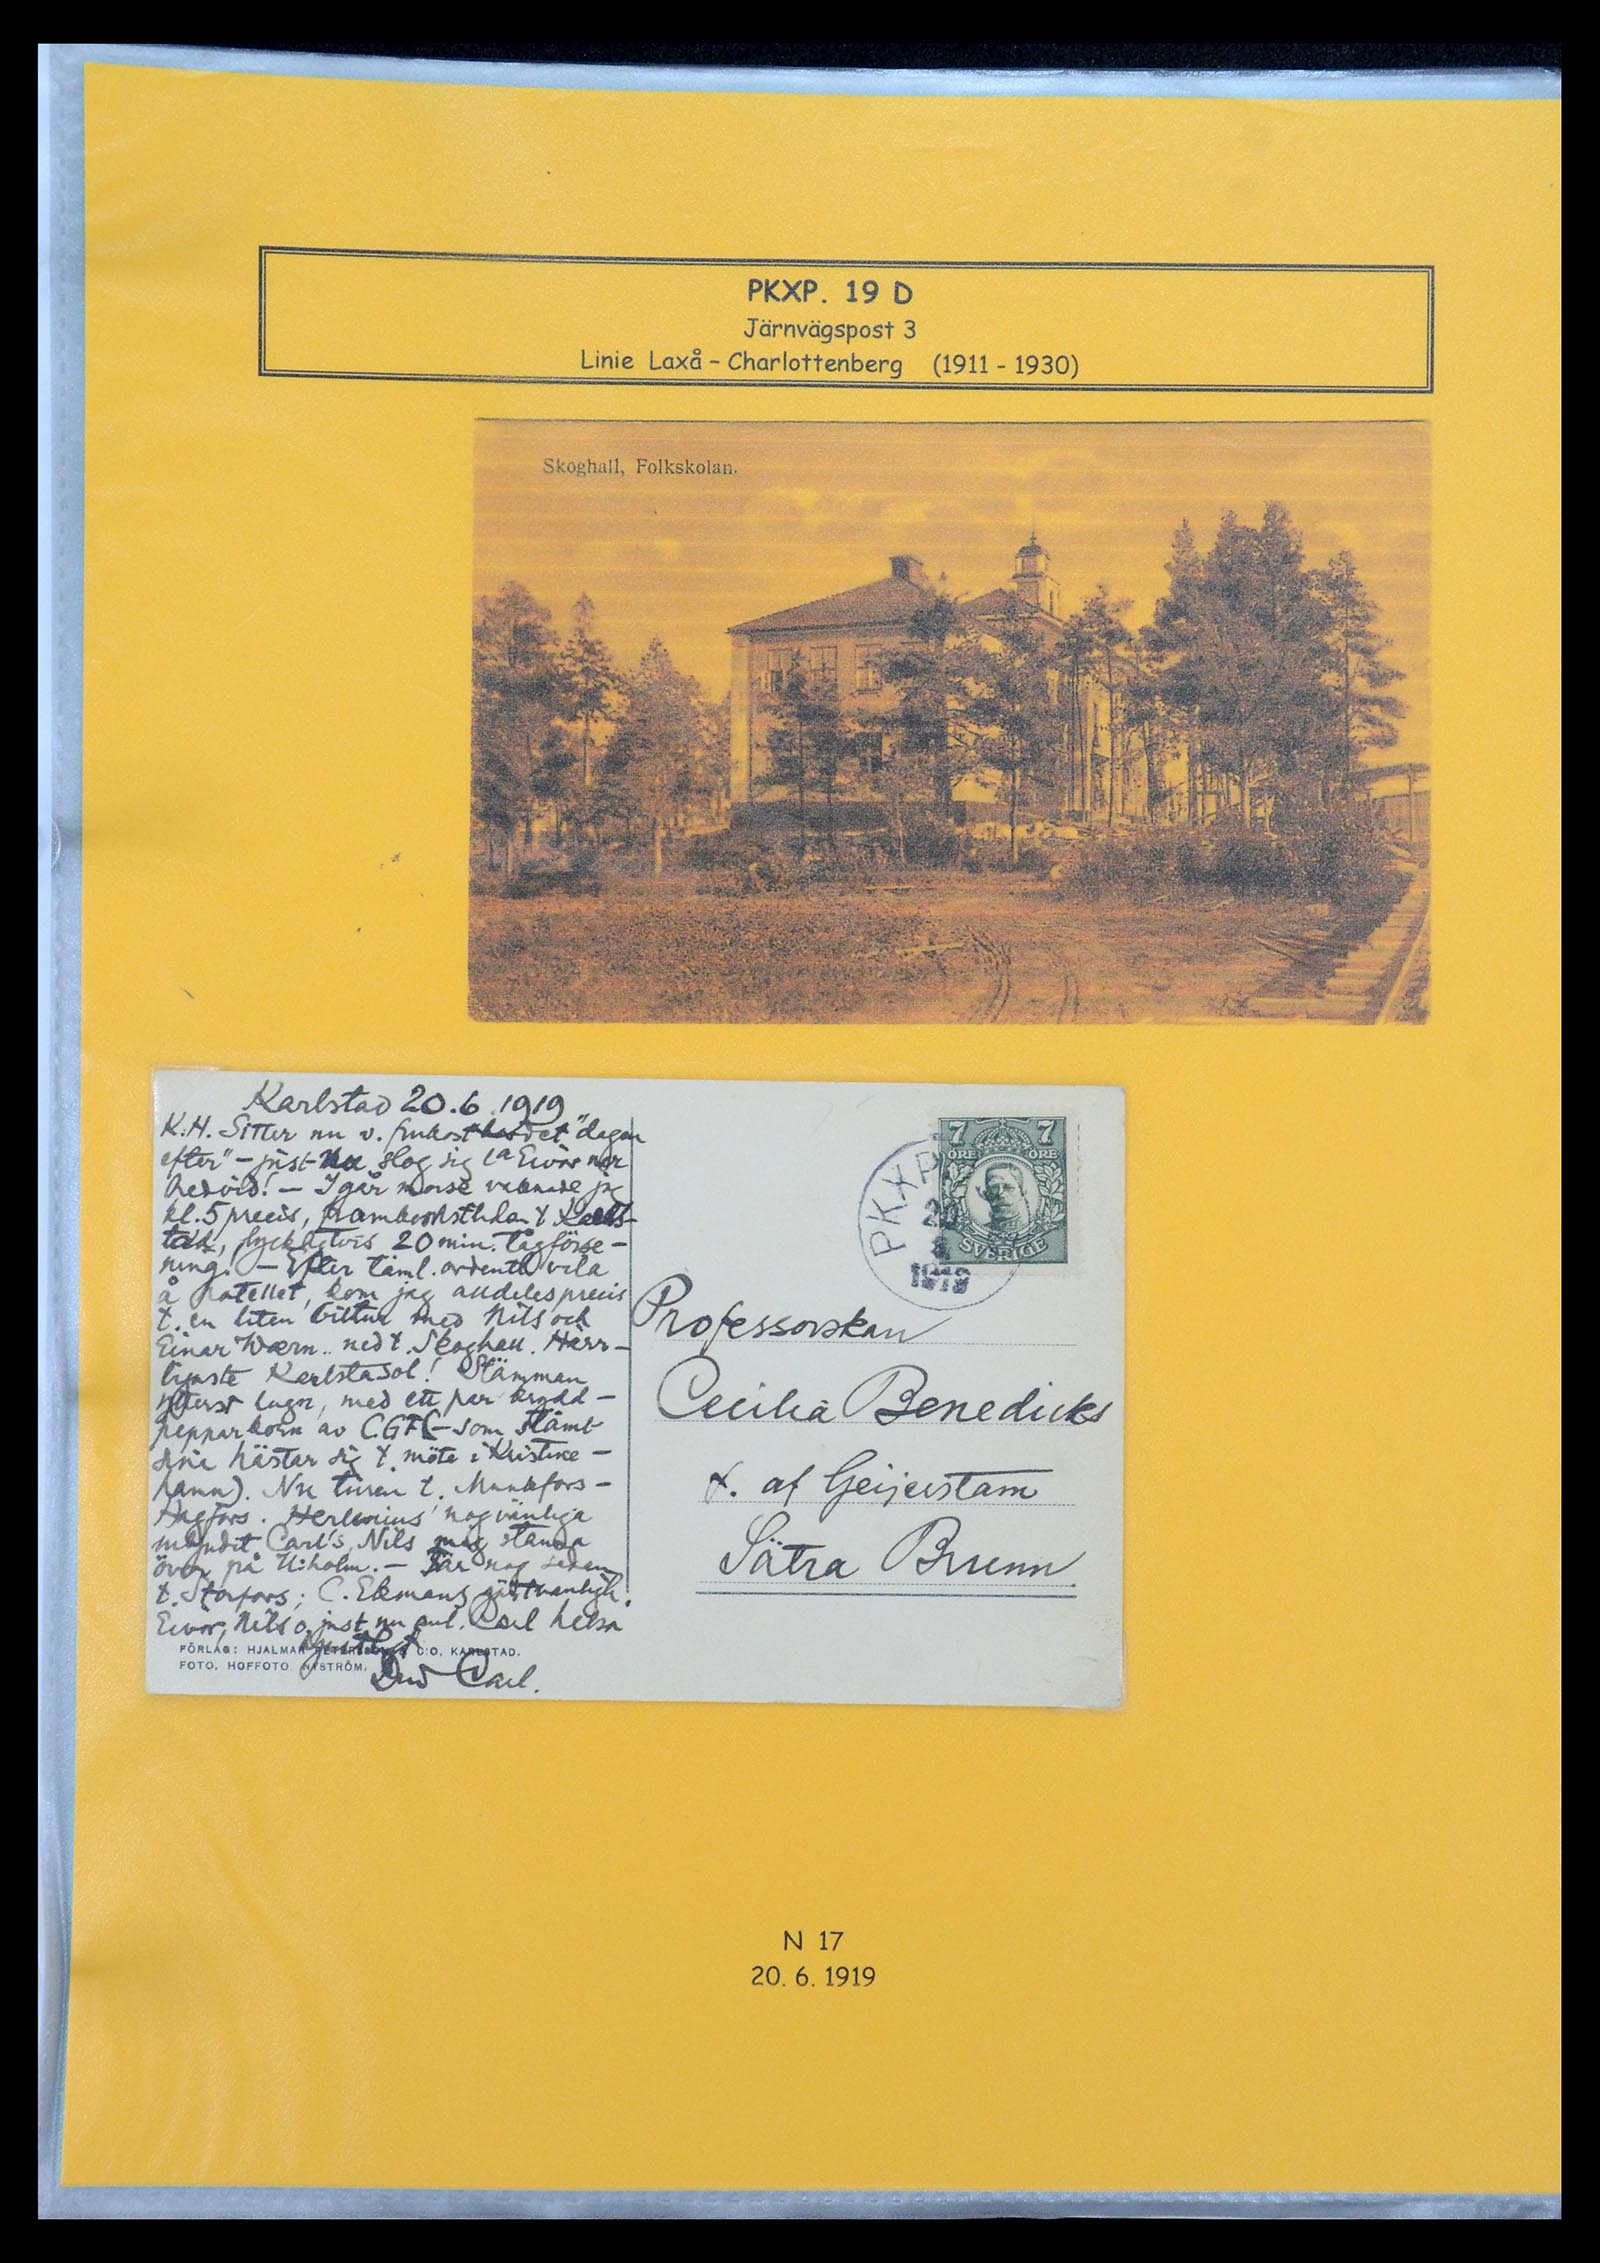 PKXP. 19 D
Järnvägspost 3
Linie Laxå – Charlottenberg (1911 - 1930)
Skoghall, Folkskolan.
Karlstad 20.6.1919
K.H. Sitter nu v. frukostbordet "dagen
efter" – just nu slog sig Eivor ner
bredvid! – I går morse vaknade jag
kl. 5 precis, framkomsttiden t. Karls-
tad, lyckligtvis 20 min. tågförse-
ning! – Efter täml. ordentl. vila
å hotellet, kom jag alldeles precis
t. en liten biltur med Nils och
Einar Wærn ned t. Skoghall. Härr-
ligaste Karlstadsol! Stämman
ytterst lugn, med ett par krydd-
pepparkorn av CGFC – som
sina hästar sig t. möte i Kristine-
hamn). Nu turen t. Munkfors-
Hagfors. Herlenius nog vänliga
Carl's, Nils mig stanna
över på U:holm. – Far nog sedan
t. Storfors; C. Ekmans
Eivor, Nils o. just nu Carl helsa
FÖRLAG: HJALMAR PETERSSON & C:O, KARLSTAD.
FOTO. HOFFOTO. NYSTRÖM.
Din Carl.
PKXP
20
6
1919
7 7
ÖRE ÖRE
SVERIGE
Professorskan
Cecilia Benedicks
f. af Geijerstam
Sätra Brunn.
N 17
20. 6. 1919